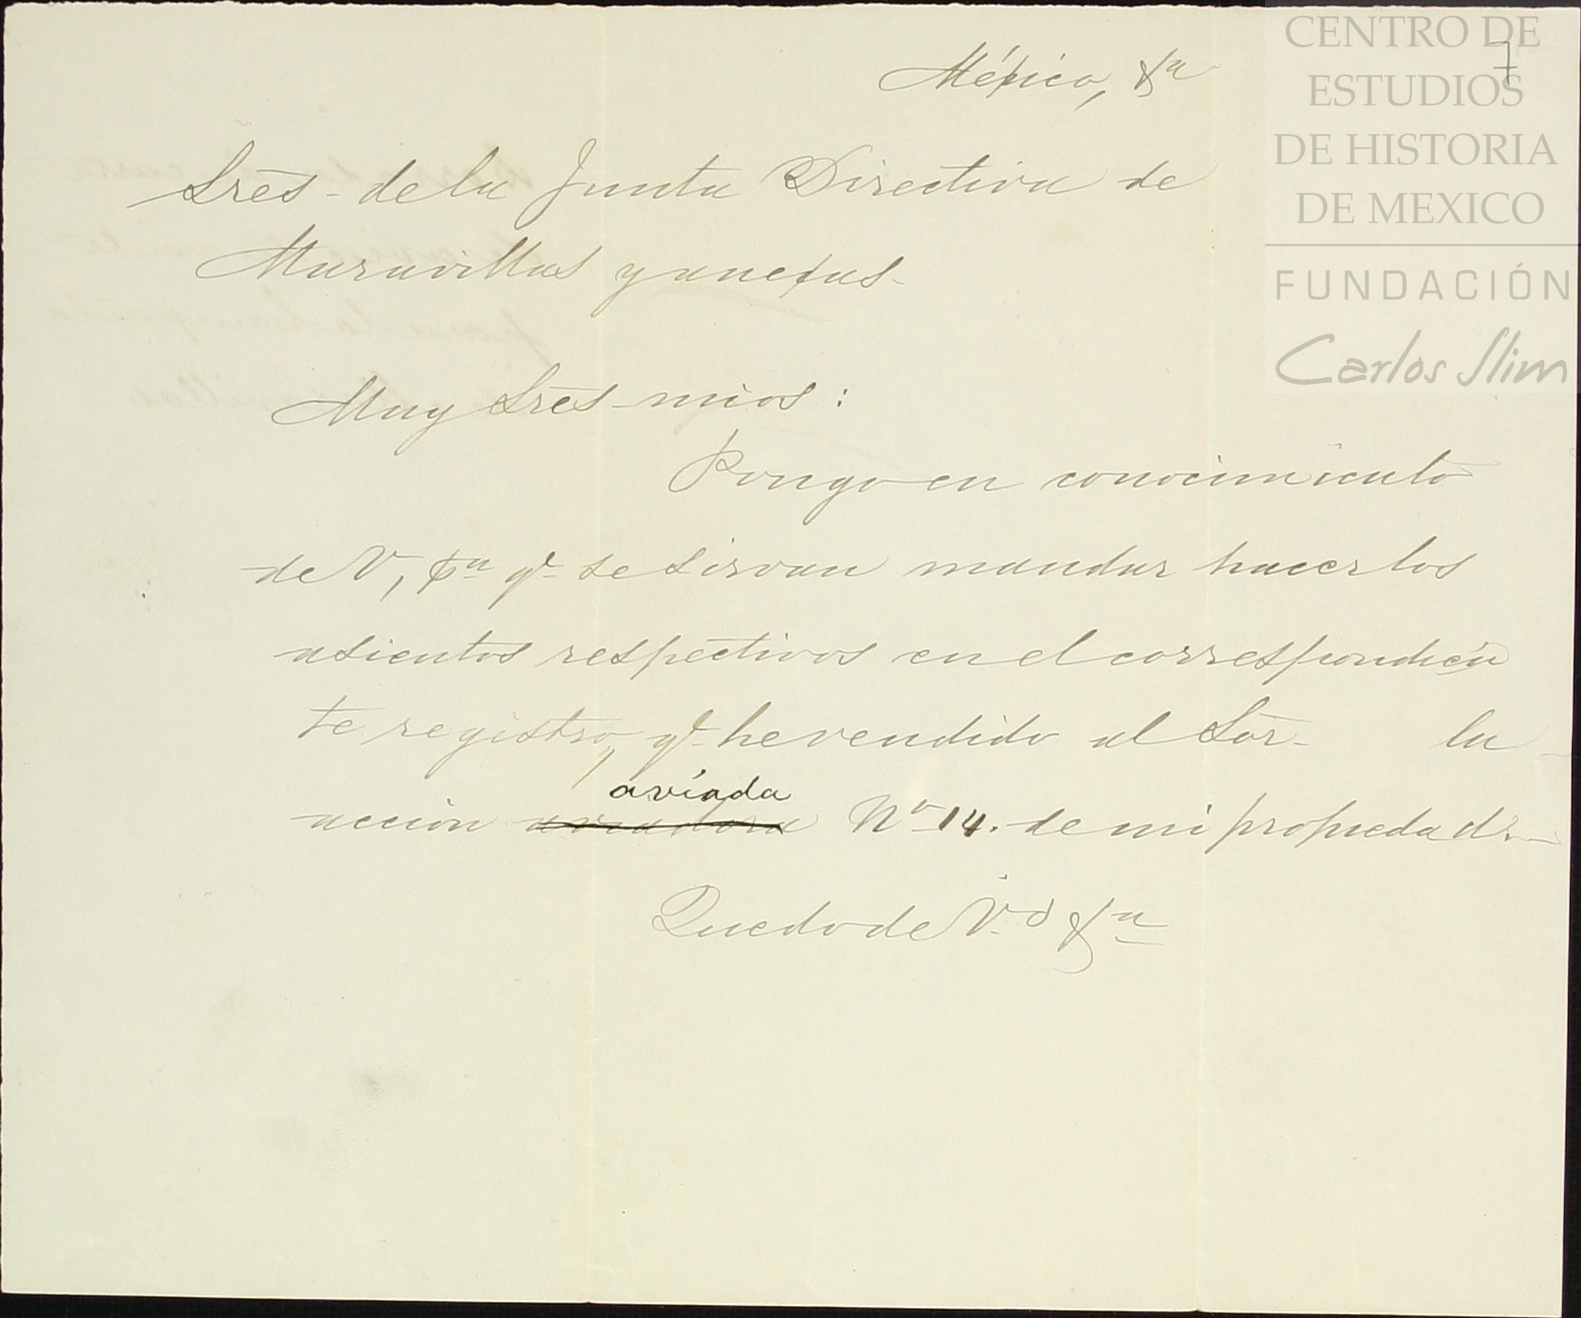 CENTRO DE
ESTUDIOS
DE HISTORIA
DE MEXICO
FUNDACIÓN
Carlos Slim
7
México, &a
Sres. de la Junta Directiva de
Maravillas y anexas.
Muy Sres. mios:
Pongo en conocimiento
de V, pa. qe. se sirvan mandar hacer los
asientos respectivos en el correspondien
te registro, qe. he vendido al Sor. la
acción aviadora aviada No. 14. de mi propiedad.
Quedo de V.d &a